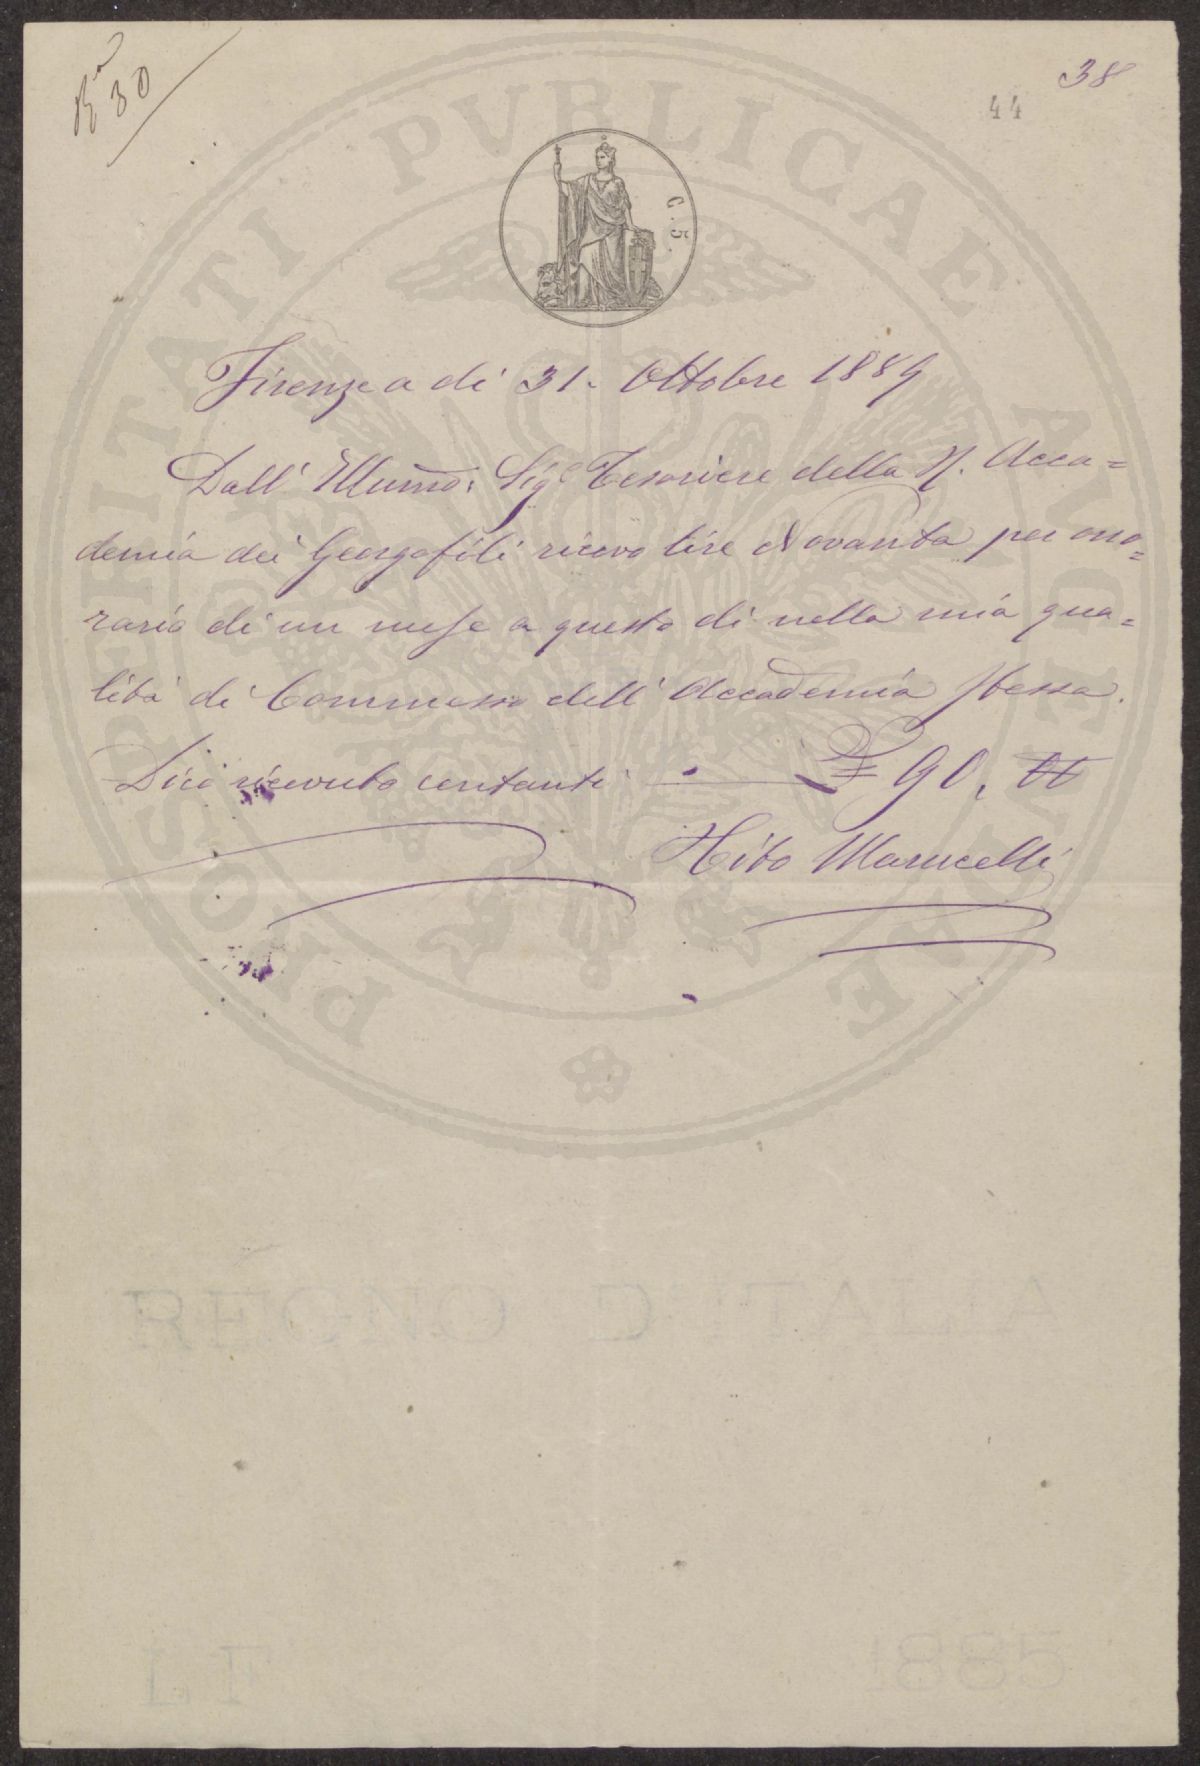 R.ª 30
38
44
PROSPERITATI PVBLICAE AVGENDAE
C. 5.
Firenze a di 31. Ottobre 1889
Dall' Illumo: Sigr Tesoriere della R. Acca=
demia dei Georgofili ricevo lire Novanta per ono=
rario di un mese a questo di nella mia qua=
lità di Commesso dell' Accademia stessa.
Dico ricevuto contanti £ 90, "
Marucelli
REGNO D'ITALIA
L F 1885